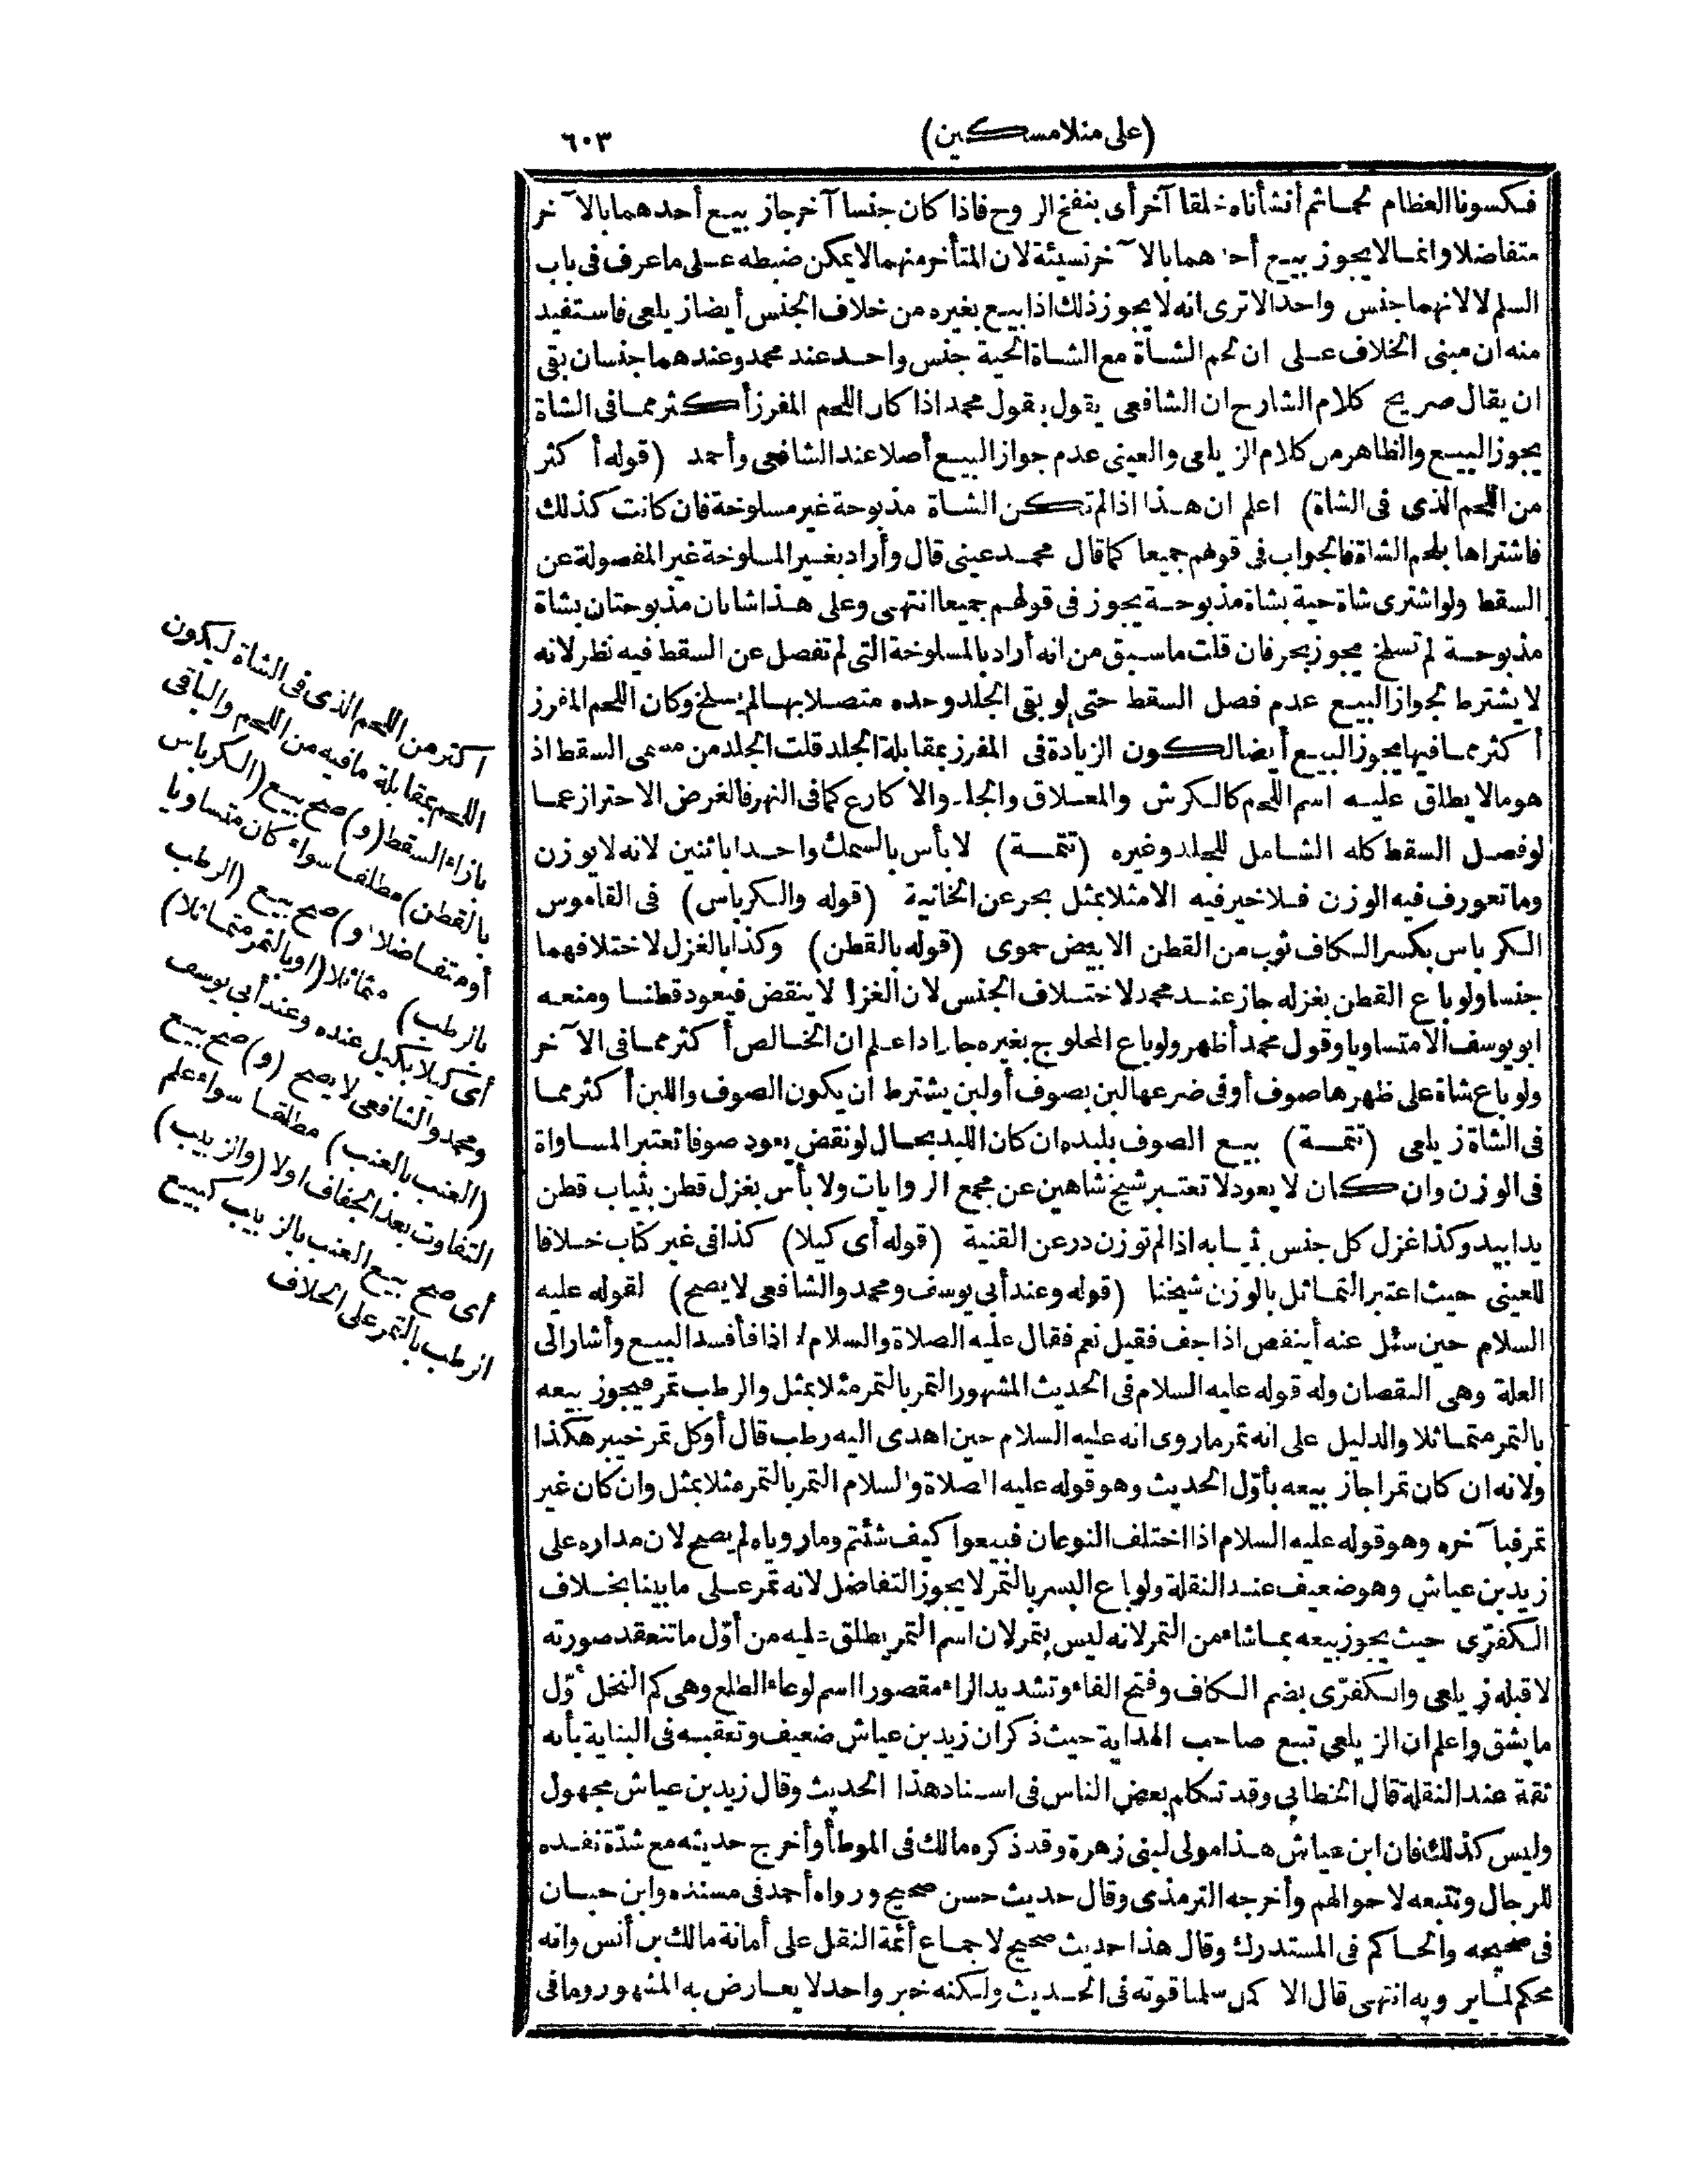 (على منلامسكين)
٦٠٣
فكسونا العظام لحما ثم أنشأناه خلقا آخر أى بنفخ الروح فاذا كان جنسا آخر جاز بيع أحدهما بالآخر
متفاضلا وانما لا يجوز بيع أحدهما بالآخر نسيئة لان المتأخر منهما لا يمكن ضبطه على ما عرف فى باب
السلم لا لانهما جنس واحد ألا ترى انه لا يجوز ذلك اذا بيع بغيره من خلاف الجنس أيضا زيلعى فاستفيد
منه ان مبنى الخلاف على ان لحم الشاة مع الشاة الحية جنس واحد عند محمد وعندهما جنسان بقى
ان يقال صريح كلام الشارح ان الشافعى يقول بقول محمد اذا كان اللحم المفرز أكثر مما فى الشاة
يجوز البيع والظاهر من كلام الزيلعى والعينى عدم جواز البيع أصلا عند الشافعى وأحمد (قوله أكثر
من اللحم الذى فى الشاة) اعلم ان هذا اذا لم تكن الشاة مذبوحة غير مسلوخة فان كانت كذلك
فاشتراها بلحم الشاة فالجواب فى قولهم جميعا كما قال محمد عينى قال وأراد بغير المسلوخة غير المفصولة عن
السقط ولو اشترى شاة حية بشاة مذبوحة يجوز فى قولهم جميعا انتهى وعلى هذا شاتان مذبوحتان بشاة
مذبوحة لم تسلخ يجوز بحر فان قلت ما سبق من انه أراد بالمسلوخة التى لم تفصل عن السقط فيه نظر لانه
لا يشترط لجواز البيع عدم فصل السقط حتى لو بقى الجلد وحده متصلا بها لم يسلخ وكان اللحم المفرز
أكثر مما فيها يجوز البيع أيضا لكون الزيادة فى المفرز بمقابلة الجلد قلت الجلد من مسمى السقط اذ
هو ما لا يطلق عليه اسم اللحم كالكرش والمعلاق والجلد والاكارع كما فى النهر فالغرض الاحتراز عما
لو فصل السقط كله الشامل للجلد وغيره (تتمة) لا بأس بالسمك واحدا باثنين لانه لا يوزن
وما تعورف فيه الوزن فلا خير فيه الا مثلا بمثل بحر عن الخانية (قوله والكرباس) فى القاموس
الكرباس بكسر الكاف ثوب من القطن الابيض حموى (قوله بالقطن) وكذا بالغزل لاختلافهما
جنسا ولو باع القطن بغزله جاز عند محمد لاختلاف الجنس لان الغزل لا ينقض فيعود قطنا ومنعه
ابو يوسف الا متساويا وقول محمد أظهر ولو باع المحلوج بغيره جاز اذا علم ان الخالص أكثر مما فى الآخر
ولو باع شاة على ظهرها صوف أو فى ضرعها لبن بصوف أو لبن يشترط ان يكون الصوف واللبن أكثر مما
فى الشاة زيلعى (تتمة) بيع الصوف بلبده ان كان اللبد بحال لو نقض يعود صوفا تعتبر المساواة
فى الوزن وان كان لا يعود لا تعتبر شيخ شاهين عن مجمع الروايات ولا بأس بغزل قطن بثياب قطن
يدا بيد وكذا غزل كل جنس بثيابه اذا لم توزن در عن القنية (قوله أى كيلا) كذا فى غير كتاب خلافا
للعينى حيث اعتبر التماثل بالوزن شيخنا (قوله وعند أبى يوسف ومحمد والشافعى لا يصح) لقوله عليه
السلام حين سئل عنه أينقص اذا جف فقيل نعم فقال عليه الصلاة والسلام لا اذا فأفسد البيع وأشار الى
العلة وهى النقصان وله قوله عليه السلام فى الحديث المشهور التمر بالتمر مثلا بمثل والرطب تمر فيجوز بيعه
بالتمر متماثلا والدليل على انه تمر ماروى انه عليه السلام حين اهدى اليه رطب قال أوكل تمر خيبر هكذا
ولانه ان كان تمرا جاز بيعه بأول الحديث وهو قوله عليه الصلاة والسلام التمر بالتمر مثلا بمثل وان كان غير
تمر فبآخره وهو قوله عليه السلام اذا اختلف النوعان فبيعوا كيف شئتم وما روياه لم يصح لان مداره على
زيد بن عياش وهو ضعيف عند النقلة ولو باع البسر بالتمر لا يجوز التفاضل لانه تمر على ما بينا بخلاف
الكفرّى حيث يجوز بيعه بما شاء من التمر لانه ليس بتمر لان اسم التمر يطلق عليه من أوّل ما تنعقد صورته
لا قبله زيلعى والكفرّى بضم الكاف وفتح الفاء وتشديد الراء مقصورا اسم لوعاء الطلع وهى كم النخل أوّل
ما ينشق واعلم ان الزيلعى تبع صاحب الهداية حيث ذكر ان زيد بن عياش ضعيف وتعقبه فى البناية بأنه
ثقة عند النقلة قال الخطابى وقد تكلم بعض الناس فى اسناد هذا الحديث وقال زيد بن عياش مجهول
وليس كذلك فان ابن عياش هذا مولى لبنى زهرة وقد ذكره مالك فى الموطأ وأخرج حديثه مع شدّة نقده
للرجال وتتبعه لاحوالهم وأخرجه الترمذى وقال حديث حسن صحيح ورواه أحمد فى مسنده وابن حبان
فى صحيحه والحاكم فى المستدرك وقال هذا حديث صحيح لاجماع أئمة النقل على أمانة مالك بن أنس وانه
محكم لما يرويه انتهى قال الاكمل سلمنا قوته فى الحديث ولكنه خبر واحد لا يعارض به المشهور وما فى
اكثر من اللحم الذى فى الشاة ليكون
اللحم بمقابلة ما فيه من اللحم والباقى
بازاء السقط (و) صح بيع (الكرباس
بالقطن) مطلقا سواء كان متساويا
أو متفاضلا (و) صح بيع (الرطب
بالرطب) متماثلا (او بالتمر متماثلا)
أى كيلا بكيل عنده وعند أبى يوسف
ومحمد والشافعى لا يصح (و) صح بيع
(العنب بالعنب) مطلقا سواء علم
التفاوت بعد الجفاف اولا (والزبيب)
أى صح بيع العنب بالزبيب كبيع
الرطب بالتمر على الخلاف